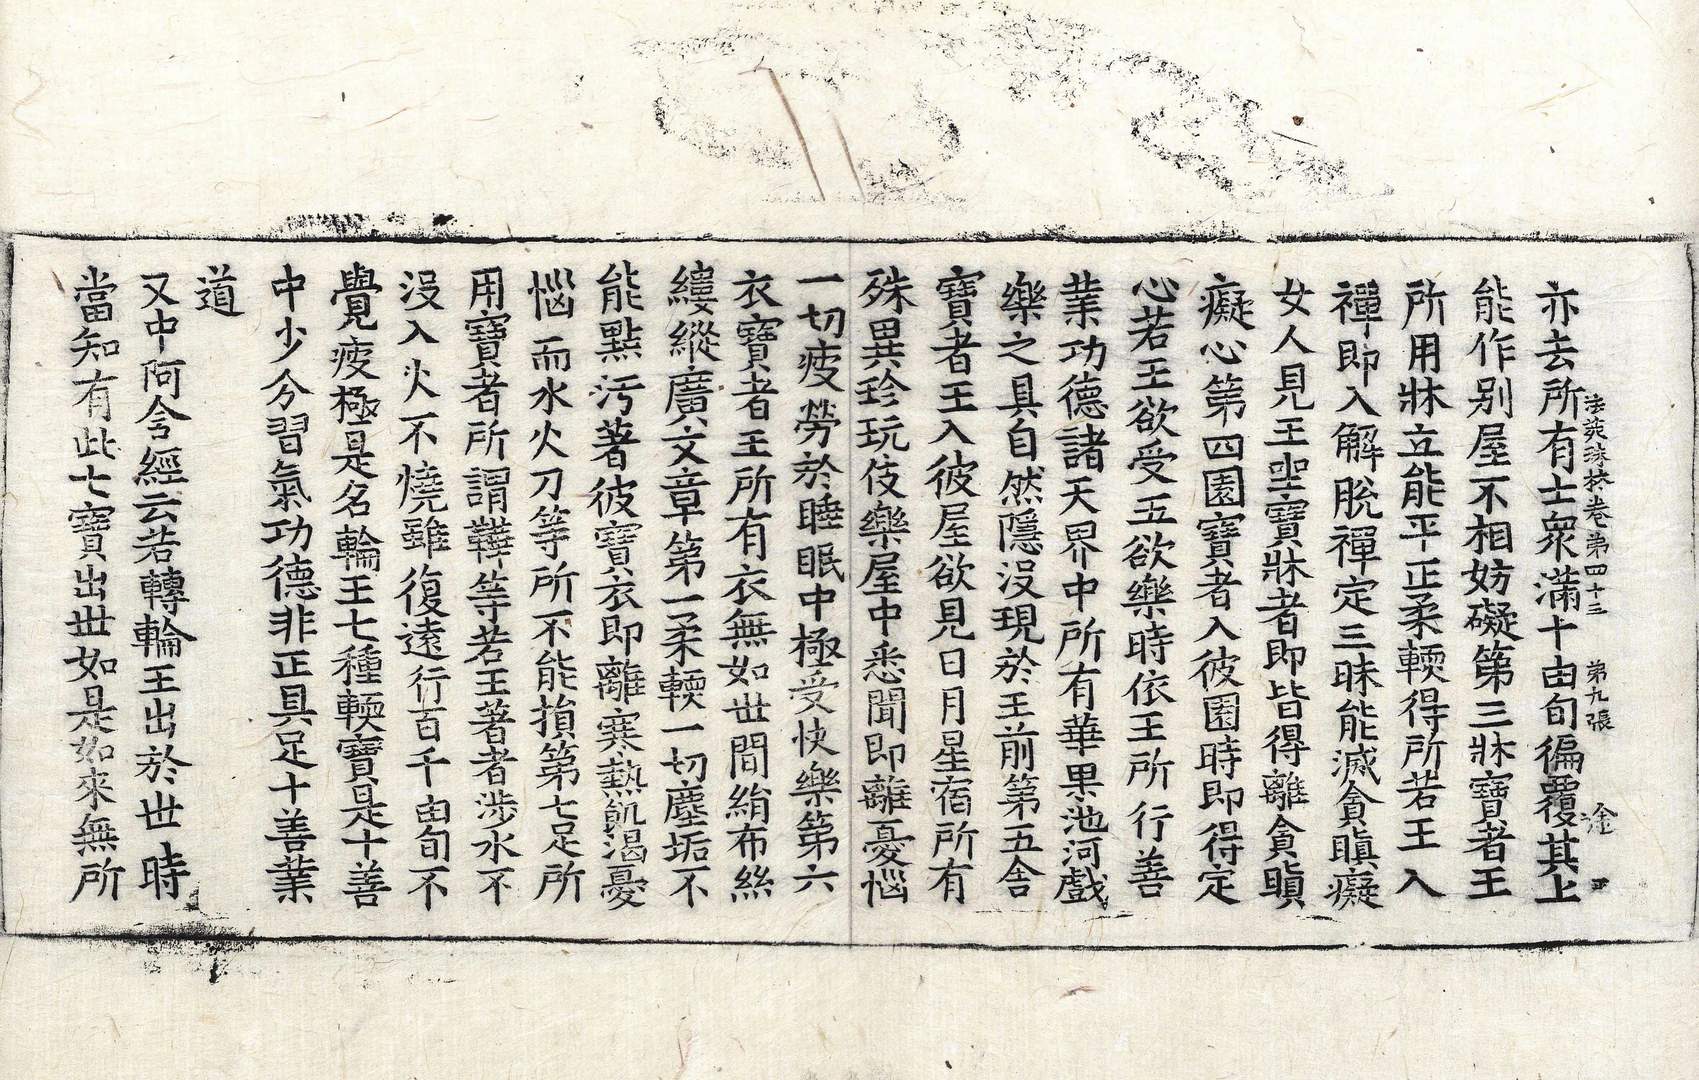 法苑珠林卷第四十三 第九張 途
亦去所有士衆滿十由旬徧覆其上
能作别屋不相妨礙第三牀寶者王
所用牀立能平正柔輭得所若王入
禪即入解脫禪定三昧能滅貪瞋癡
女人見王坐寶牀者即皆得離貪瞋
癡心第四園寶者入彼園時即得定
心若王欲受五欲樂時依王所行善
業功德諸天界中所有華果池河戲
樂之具自然隱沒現於王前第五舍
寶者王入彼屋欲見日月星宿所有
殊異珍玩伎樂屋中悉聞即離憂惱
一切疲勞於睡眠中極受快樂第六
衣寶者王所有衣無如世間絹布絲
縷縱廣文章第一柔輭一切塵垢不
能點汚著彼寶衣即離寒熱飢渴憂
惱而水火刀等所不能損第七足所
用寶者所謂鞾等若王著者涉水不
沒入火不燒雖復遠行百千由旬不
覺疲極是名輪王七種輭寶是十善
中少分習氣功德非正具足十善業
道
又中阿含經云若轉輪王出於世時
當知有此七寶出世如是如來無所